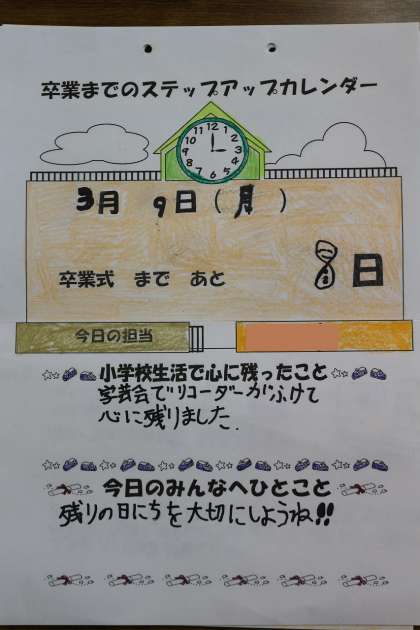 卒業までのステップアップカレンダー
12
11 1
10 2
9 3
8 4
7 5
6
3月 9日（月）
卒業式 まで あと 8日
今日の担当
小学校生活で心に残ったこと
学芸会でリコーダーがふけて
心に残りました.
今日のみんなへひとこと
残りの日にちを大切にしようね!!